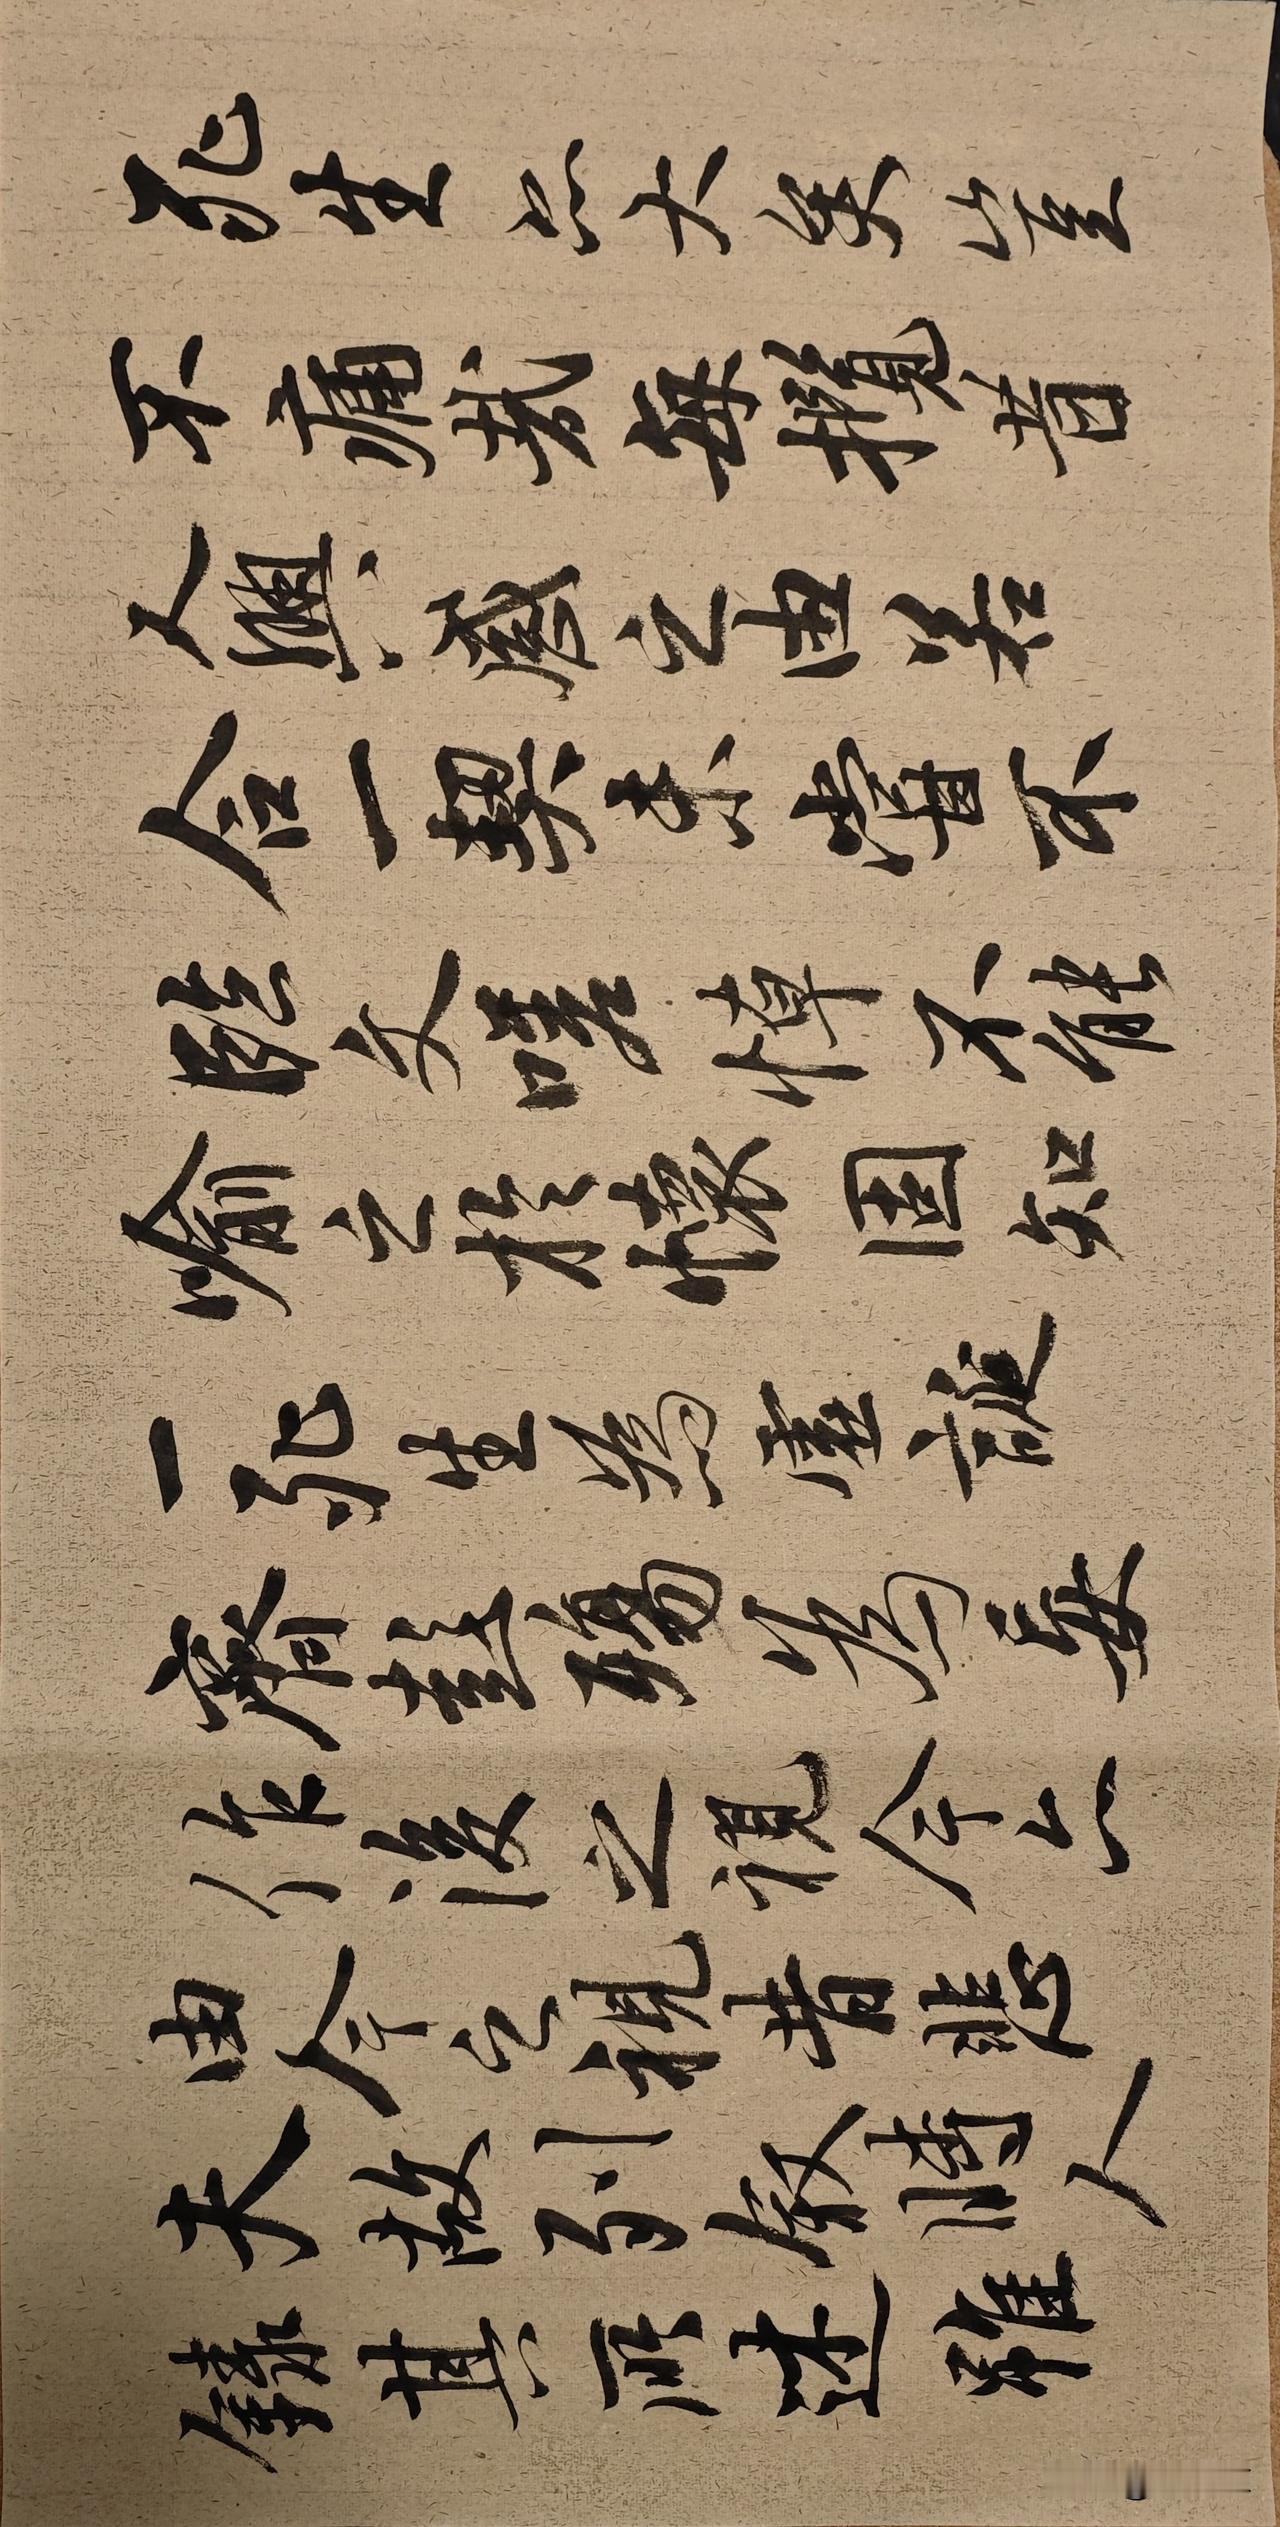 死生亦大矣豈
不痛哉每攬昔
人興感之由若
合一契未嘗不
臨文嗟悼不能
喻之於懷固知
一死生為虛誕
齊彭殤為妄
作後之視今亦
由今之視昔悲
夫故列敘時人
錄其所述雖